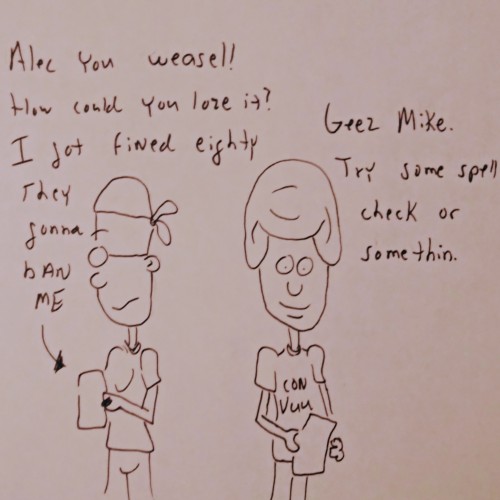 Alec you weasel!
How could you lose it?
I got fined eighty
They
gonna
bAN
ME
Geez Mike.
Try some spell
check or
somethin.
CON
Vuu